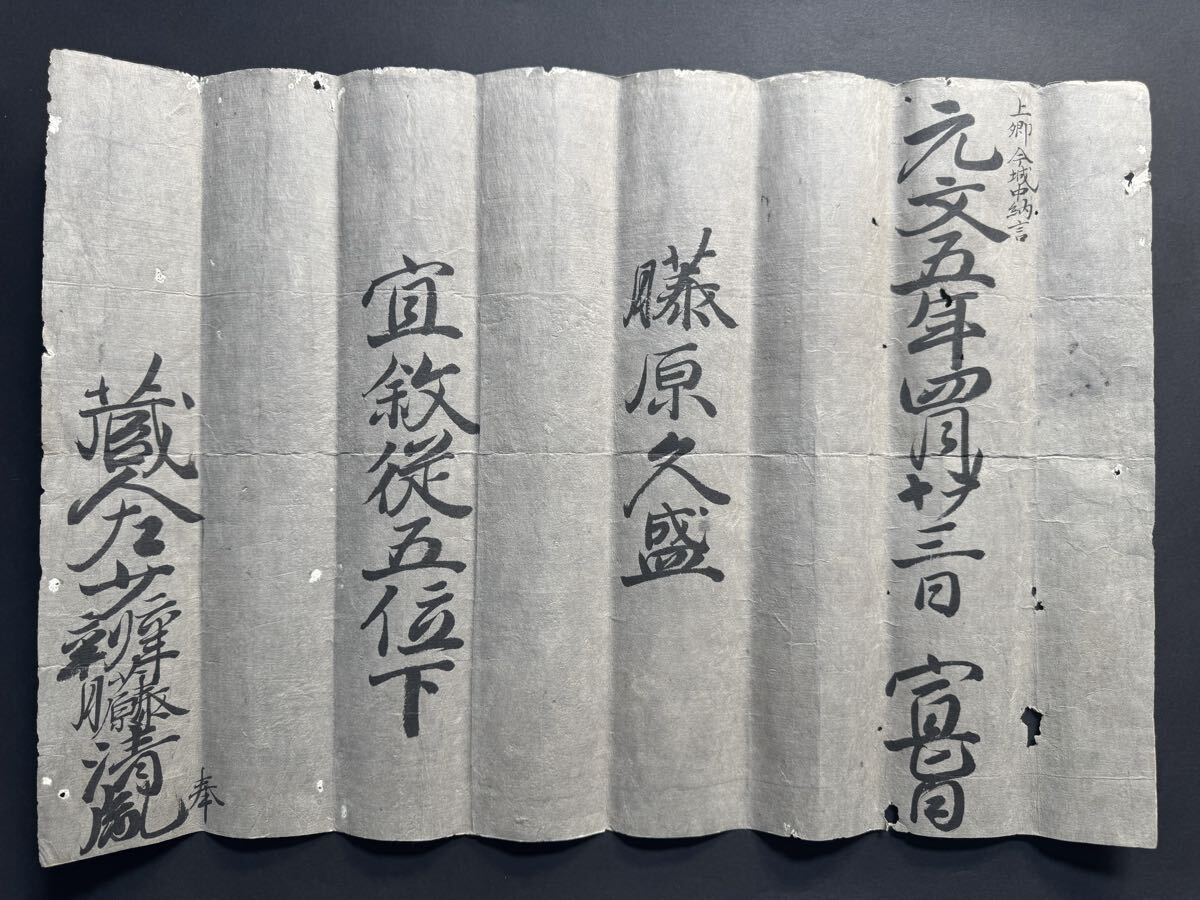 上卿 今城中納言
元文五年四月廿三日 宣旨
藤原久盛
宜敘從五位下
藏人左少辨藤原清胤 奉